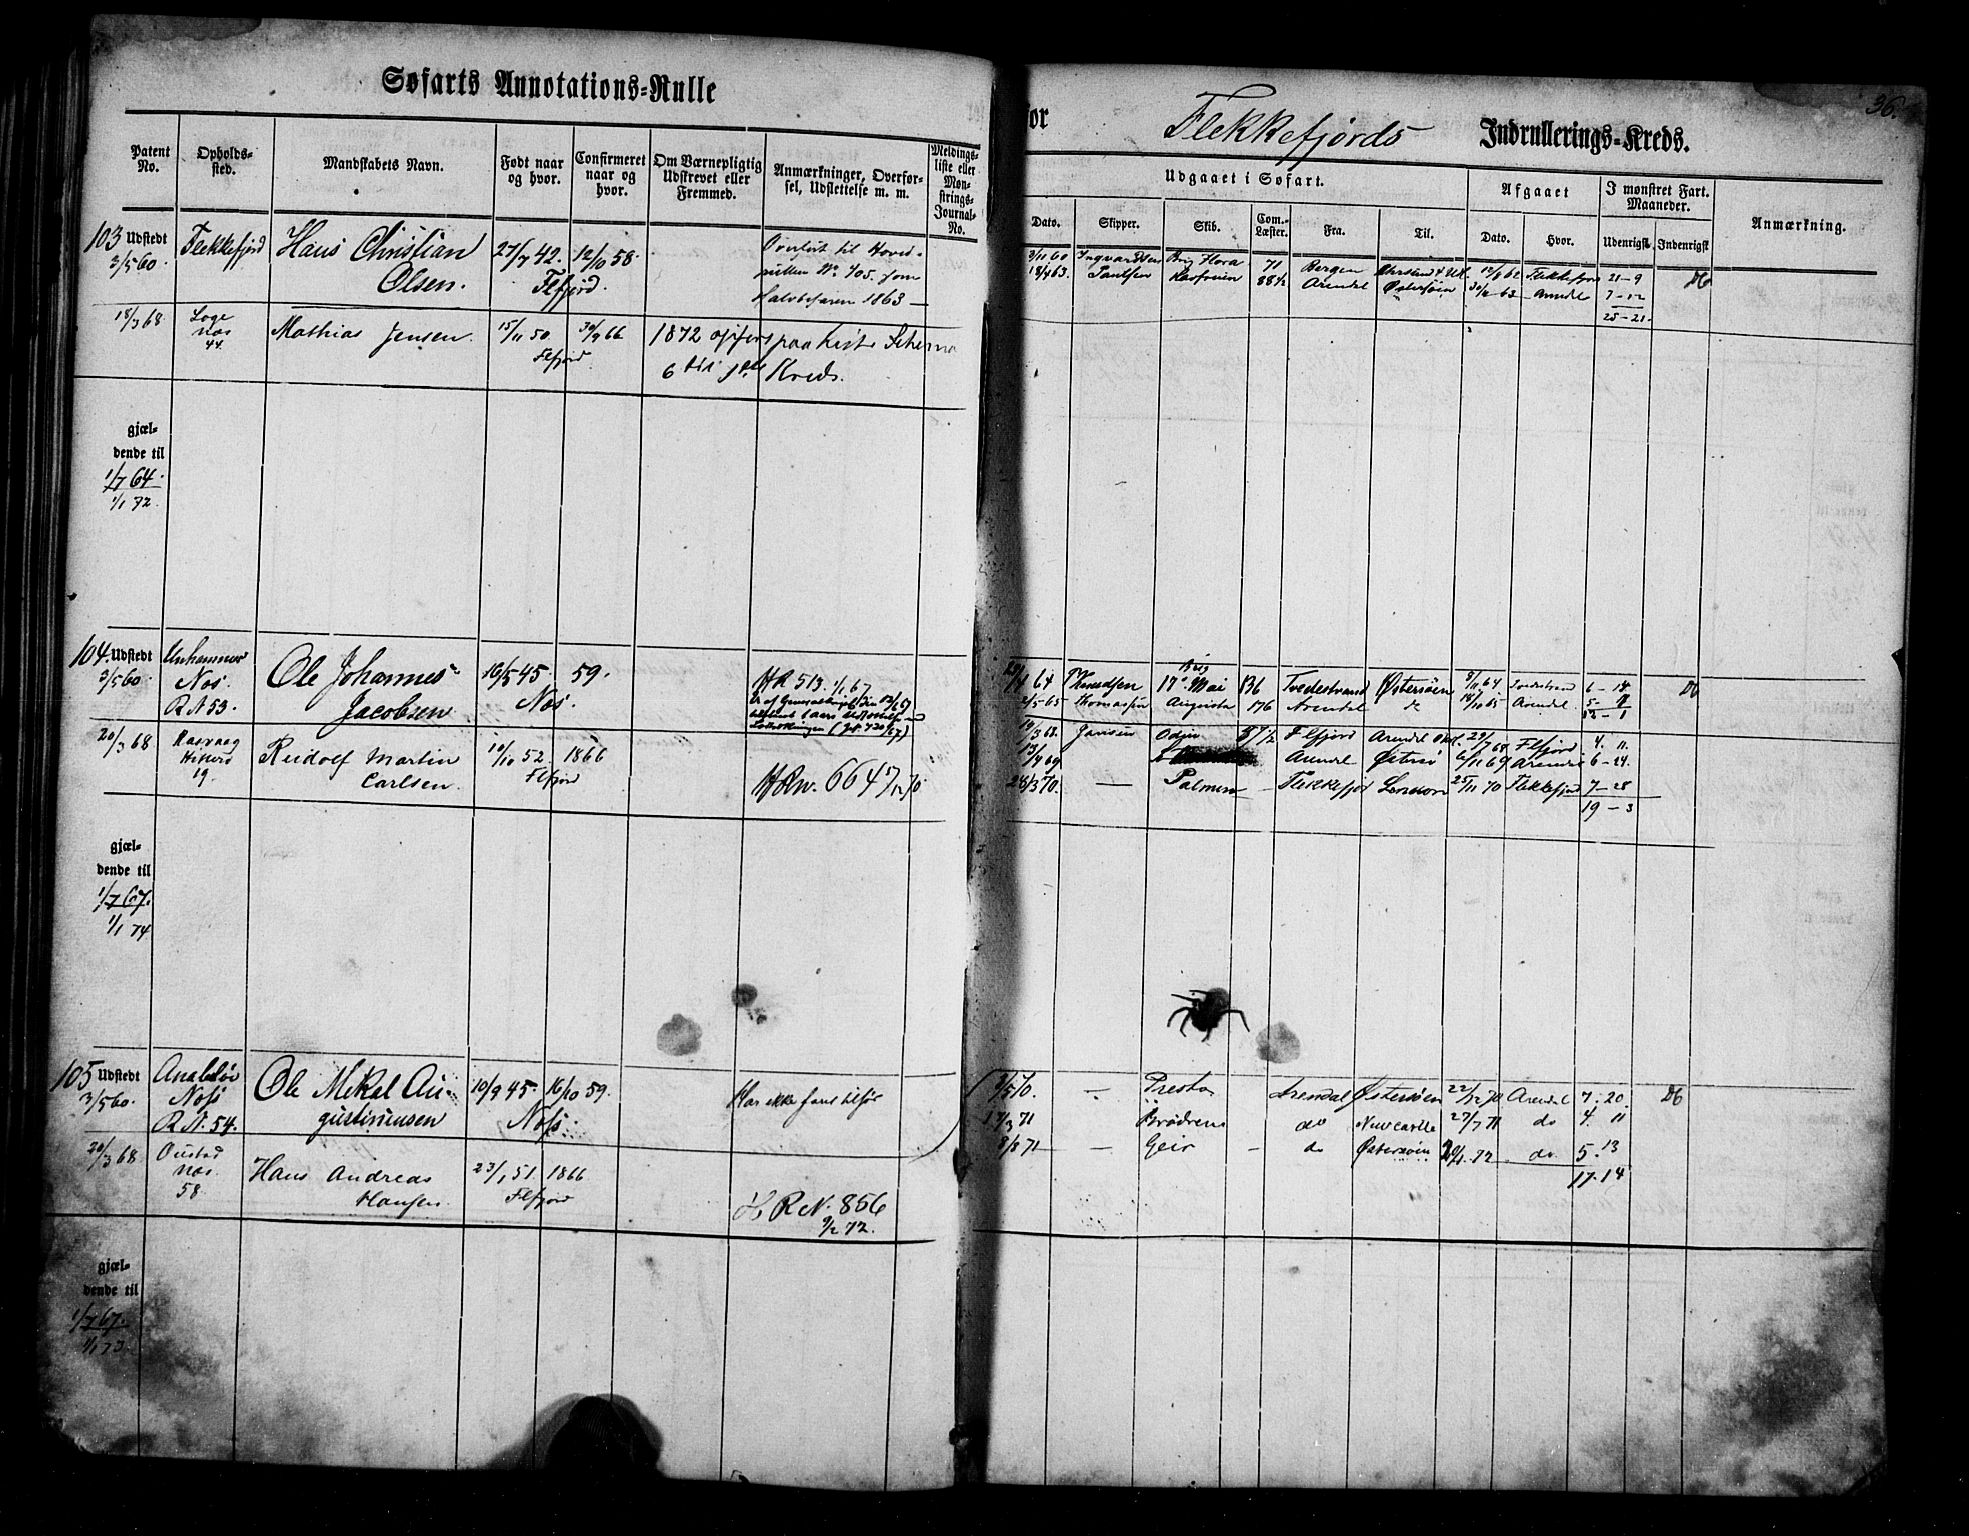 Søfarts Annotations=Rulle
for Flekkefjords Indrullerings=Kreds.
36.
Patent No.
Opholds=sted.
Mandskabets Navn.
Født naar og hvor.
Confirmeret naar og hvor.
Om Værnepligtig Udskrevet eller Fremmed.
Anmærkninger, Overførsel, Udslettelse m. m.
Meldings=liste eller Mønstrings=Journal=No.
Udgaaet i Søfart.
Afgaaet
I mønstret Fart. Maaneder.
Anmærkning.
Dato.
Skipper.
Skib.
Com.=Læster.
Fra.
Til.
Dato.
Hvor.
Udenrigsk.
Indenrigsk
103 Udstedt Flekkefjord Hans Christian 27/7 42. 12/10 58. Overført til Hoved=
3/5 60. Olsen. Flfjord. rullen No. 705. som
Halvbefaren 1863
3/11 60 Ingvardsen Brig Flora 71 Bergen 12/8 62 Flekkefjord 21-9 D6
18/4 63. Paulsen Havfruen 88½ Arendal Østersøen 63 Arendal 7-12
25-21.
18/3 68 Loge Mathias Jensen. 15/11 50. 30/9 66 1872 opført paa Liste Schema
Nas Flfjord. 6 til Kreds.
44.
gjæl=
dende til
1/7 64.
1/1 72.
104. Udstedt Ole Johannes 16/5 45. 59. H R 513. 1/1 67
3/5 60. Nas. Jacobsen Nas.
R N 53.
64 Knudsen Brig 17de Mai 136 Tvedestrand Østersøen 8/11 64. Tvedestrand 6-14 D6
2/5 65 Thomassen Augusta 176 Arendal do 14/10 65 Arendal
20/3 68. Rasvaag Rudolf Martin 10/10 52. 1866
Hitterø Carlsen. Flfjord H Rn. 664 1/12 70
19
68. Jansen Odin 37½ Flfjord Arendal 29/7 68. Flfjord 4. 11.
13/4 69 Arendl Østersø 6/11 69 Arendal 6-24.
28/3 70. — Palmen — Flekkefjord London 25/11 70 Flekkefjord 7-28
19-3
gjæl=
dende til
1/7 67.
1/1 74
105 Udstedt Anabeløe Ole Mikal Au= 10/9 45. 16/10 59. Har ikke faret tilsøs
3/5 60. Nass gustinusen Nass.
R N. 54.
9/5 70. — Presto Arendal Østersøen 22/12 70 Arendal 7. 20. D6
17/3 71 Brødrene do Newcastle 27/7 71 do 4. 11
8/8 71 — Geir — do Østersøen 72. do. 5. 13
17. 14
20/3 68. Oustad Hans Andreas 23/1 51. 1866
Nas. Hansen. Flfjord H R N. 856
58. 9/2 72.
gjæl=
dende til
1/7 67.
1/1 73.